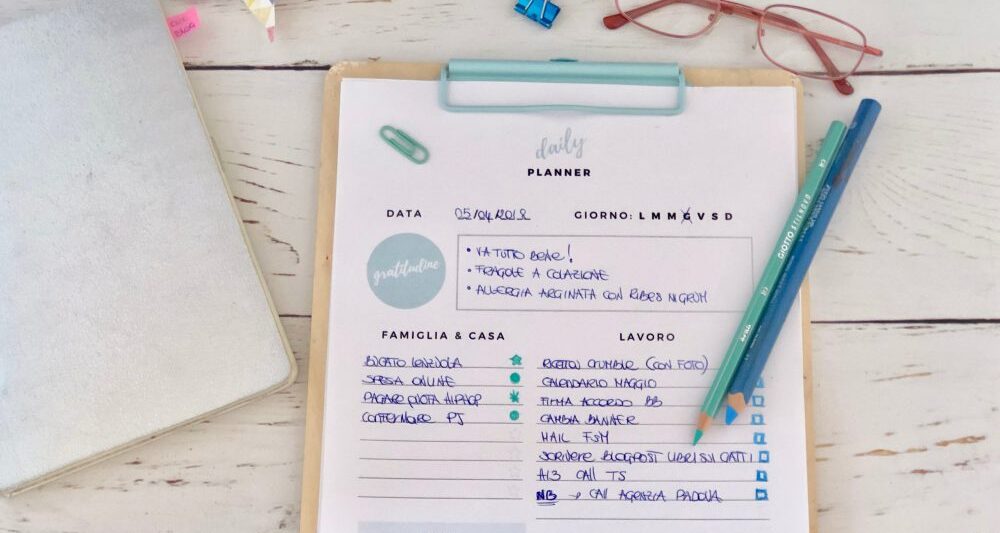 daily
PLANNER
DATA 05/04/2018 GIORNO: L M M G V S D
gratitudine
• VA TUTTO BENE!
• FRAGOLE A COLAZIONE
• ALLERGIA ARGINATA CON RIBES NIGRUM
FAMIGLIA & CASA
BUCATO LENZUOLA
SPESA ONLINE
PAGARE QUOTA HIPHOP
CONFERMARE PJ
LAVORO
RICETTA CRUMBLE (CON FOTO)
CALENDARIO MAGGIO
FIRMA ACCORDO BB
CAMBIA BANNER
MAIL FSM
SCRIVERE BLOGPOST LIBRI SUI GATTI
H13 CALL TS
NB → CALL AGENZIA PADOVA
GIOTTO STILNOVO